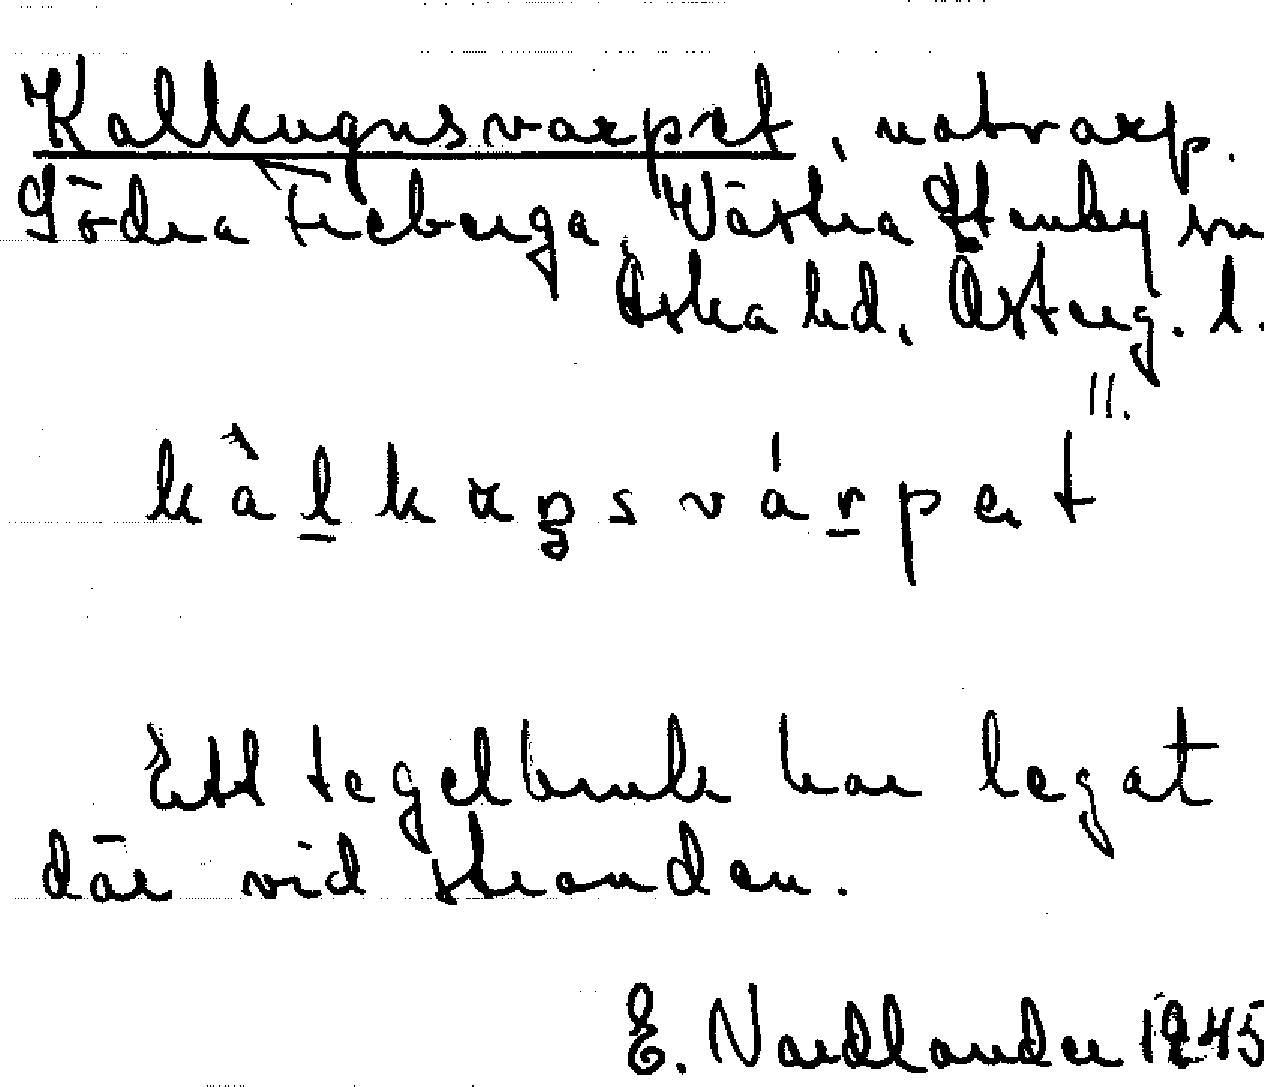 Kalkugnsvarpet, notvarp.
Södra Freberga Västra Stenby sn
Aska hd, Österg. l.
11.
kàlkuŋsvárpet
Ett tegelbruk har legat
där vid stranden.
E. Nordlander 1945